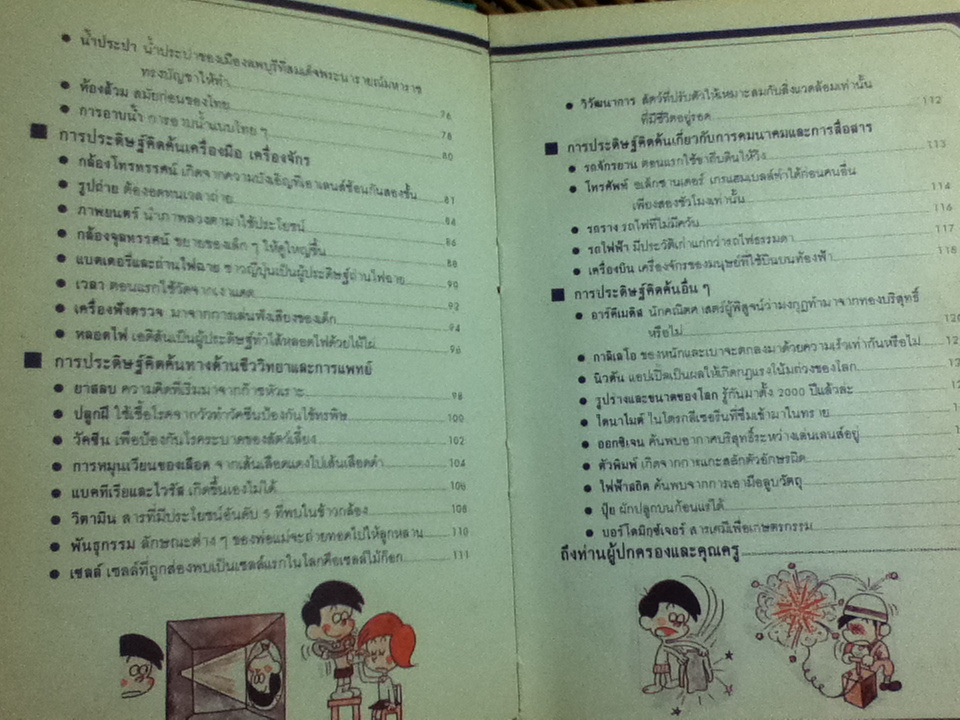 ● น้ำประปา น้ำประปาของเมืองลพบุรีที่สมเด็จพระนารายณ์มหาราช
ทรงบัญชาให้ทำ 76
● ห้องส้วม สมัยก่อนของไทย 78
● การอาบน้ำ การอาบน้ำแบบไทย ๆ 80
■ การประดิษฐ์คิดค้นเครื่องมือ เครื่องจักร
● กล้องโทรทรรศน์ เกิดจากความบังเอิญที่เอาเลนส์ซ้อนกันสองชั้น 81
● รูปถ่าย ต้องอดทนเวลาถ่าย 84
● ภาพยนตร์ นำภาพลวงตามาใช้ประโยชน์ 86
● กล้องจุลทรรศน์ ขยายของเล็ก ๆ ให้ดูใหญ่ขึ้น 88
● แบตเตอรี่และถ่านไฟฉาย ชาวญี่ปุ่นเป็นผู้ประดิษฐ์ถ่านไฟฉาย 90
● เวลา ตอนแรกใช้วัดจากเงาแดด 92
● เครื่องฟังตรวจ มาจากการเล่นฟังเสียงของเด็ก 94
● หลอดไฟ เอดิสันเป็นผู้ประดิษฐ์ทำไส้หลอดไฟด้วยไม้ไผ่ 96
■ การประดิษฐ์คิดค้นทางด้านชีววิทยาและการแพทย์
● ยาสลบ ความคิดที่เริ่มมาจากก๊าซหัวเราะ 98
● ปลูกฝี ใช้เชื้อโรคจากวัวทำวัคซีนป้องกันไข้ทรพิษ 100
● วัคซีน เพื่อป้องกันโรคระบาดของสัตว์เลี้ยง 102
● การหมุนเวียนของเลือด จากเส้นเลือดแดงไปเส้นเลือดดำ 104
● แบคทีเรียและไวรัส เกิดขึ้นเองไม่ได้ 106
● วิตามิน สารที่มีประโยชน์อันดับ 5 ที่พบในข้าวกล้อง 108
● พันธุกรรม ลักษณะต่าง ๆ ของพ่อแม่จะถ่ายทอดไปให้ลูกหลาน 110
● เซลล์ เซลล์ที่ถูกส่องพบเป็นเซลล์แรกในโลกคือเซลล์ไม้ก๊อก 111
● วิวัฒนาการ สัตว์ที่ปรับตัวให้เหมาะสมกับสิ่งแวดล้อมเท่านั้น
ที่มีชีวิตอยู่รอด 112
■ การประดิษฐ์คิดค้นเกี่ยวกับการคมนาคมและการสื่อสาร
● รถจักรยาน ตอนแรกใช้ขาถีบดินให้วิ่ง 113
● โทรศัพท์ อเล็กซานเดอร์ เกรแฮมเบลล์ทำได้ก่อนคนอื่น
เพียงสองชั่วโมงเท่านั้น 114
● รถราง รถไฟที่ไม่มีควัน 116
● รถไฟฟ้า มีประวัติเก่าแก่กว่ารถไฟธรรมดา 117
● เครื่องบิน เครื่องจักรของมนุษย์ที่ใช้บินบนท้องฟ้า 118
■ การประดิษฐ์คิดค้นอื่น ๆ
● อาร์คิเมดิส นักคณิตศาสตร์ผู้พิสูจน์ว่ามงกุฎทำมาจากทองบริสุทธิ์
หรือไม่ 120
● กาลิเลโอ ของหนักและเบาจะตกลงมาด้วยความเร็วเท่ากันหรือไม่
● นิวตัน แอปเปิ้ลเป็นผลให้เกิดกฎแรงโน้มถ่วงของโลก
● รูปร่างและขนาดของโลก รู้กันมาตั้ง 2000 ปีแล้วล่ะ
● ไดนาไมต์ ไนโตรกลีเซอรีนที่ซึมเข้ามาในทราย
● ออกซิเจน ค้นพบอากาศบริสุทธิ์ระหว่างเล่นเลนส์อยู่
● ตัวพิมพ์ เกิดจากการแกะสลักตัวอักษรผิด
● ไฟฟ้าสถิต ค้นพบจากการเอามือลูบวัตถุ
● ปุ๋ย ผักปลูกบนก้อนแร่ได้
● บอร์โดมิกซ์เจอร์ สารเคมีเพื่อเกษตรกรรม
ถึงท่านผู้ปกครองและคุณครู